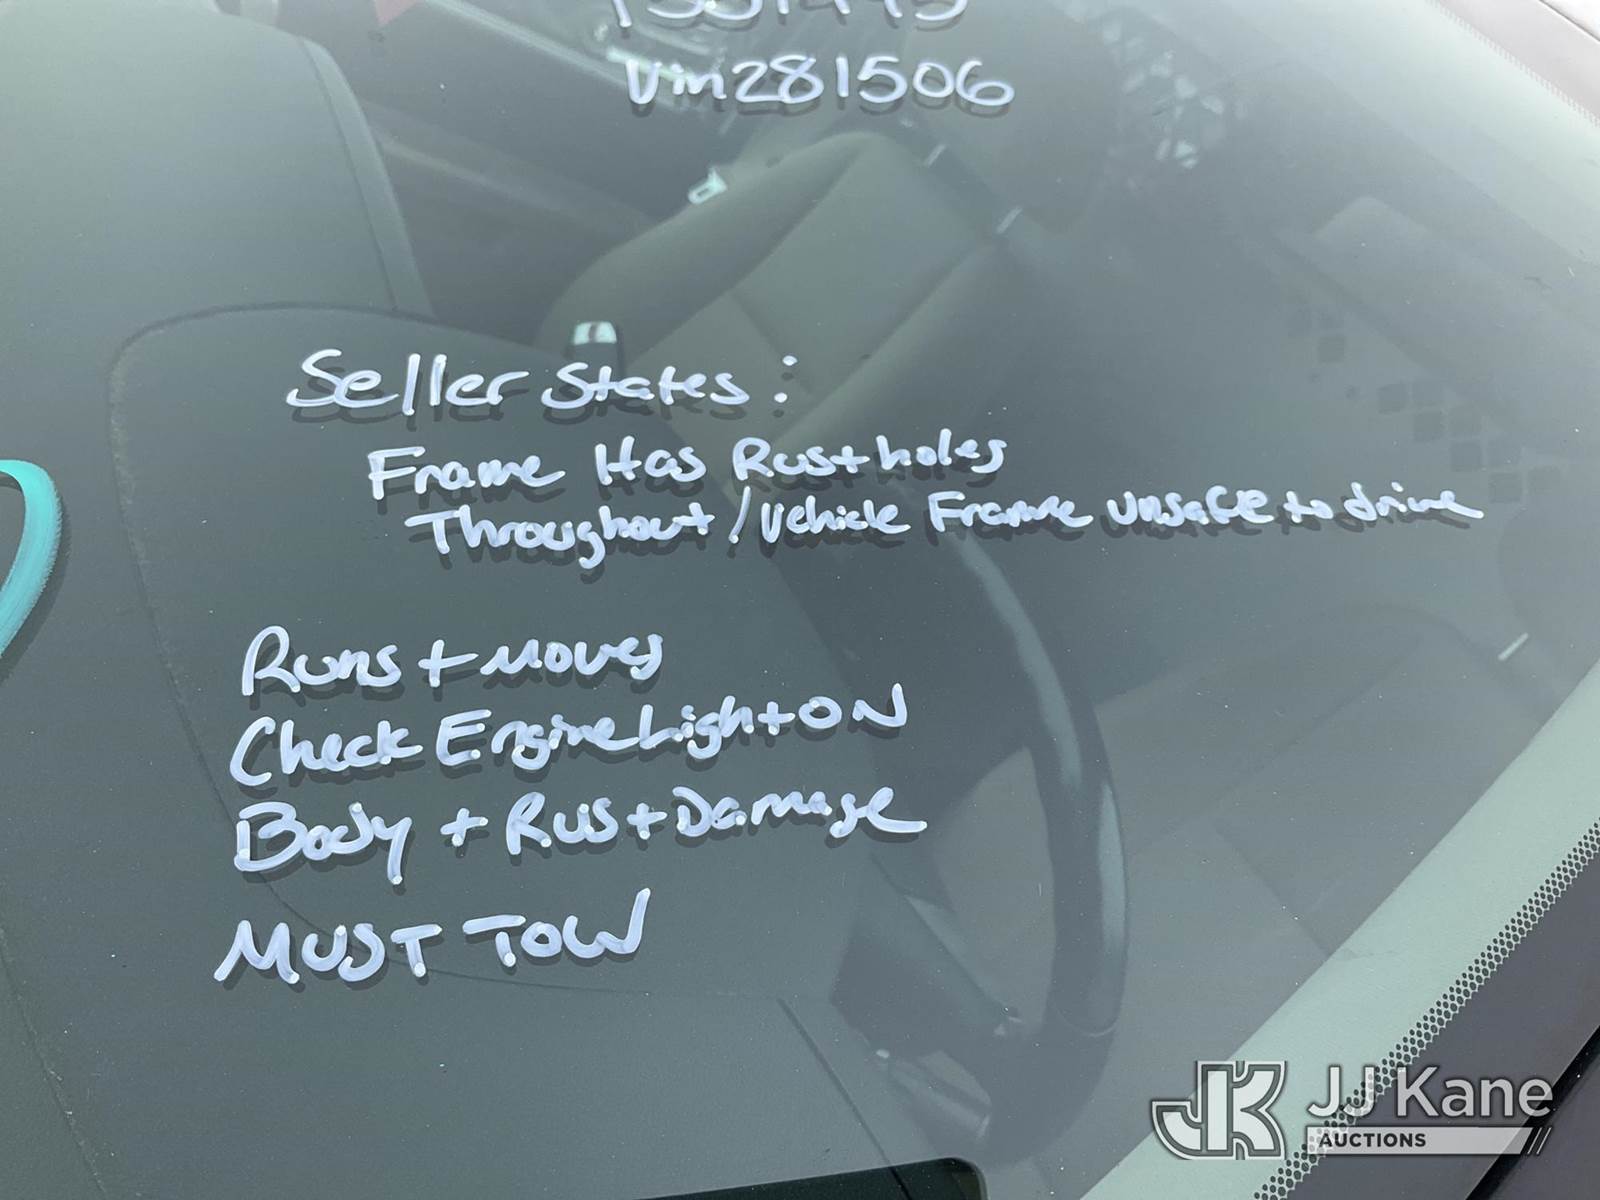 Vin 281506
Seller States:
Frame Has Rust holes
Throughout / Vehicle Frame unsafe to drive
Runs + Moves
Check Engine Light ON
Body + Rust Damage
MUST TOW
JK JJ Kane
AUCTIONS